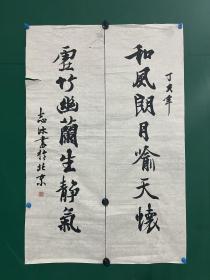 丁亥年
和風朗月喻天懷
虛竹幽蘭生靜氣
志冰書於北京